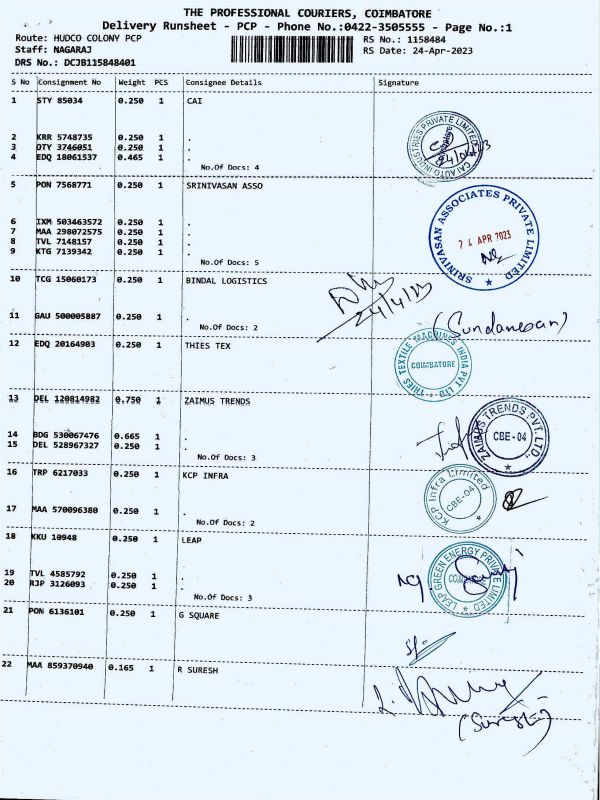 THE PROFESSIONAL COURIERS, COIMBATORE
Delivery Runsheet - PCP - Phone No.:0422-3505555 - Page No.:1
Route: HUDCO COLONY PCP RS No.: 1158484
Staff: NAGARAJ RS Date: 24-Apr-2023
DRS No.: DCJB115848401
S No Consignment No Weight PCS Consignee Details Signature
1 STY 85034 0.250 1 CAI
CAI AUTO INDUSTRIES PRIVATE LIMITED
2 KRR 5748735 0.250 1 .
3 OTY 3746051 0.250 1 .
4 EDQ 18061537 0.465 1 .
No.Of Docs: 4
5 PON 7568771 0.250 1 SRINIVASAN ASSO
SRINIVASAN ASSOCIATES PRIVATE LIMITED
24 APR 2023
6 IXM 503463572 0.250 1 .
7 MAA 298072575 0.250 1 .
8 TVL 7148157 0.250 1 .
9 KTG 7139342 0.250 1 .
No.Of Docs: 5
10 TCG 15060173 0.250 1 BINDAL LOGISTICS
24/4/23
11 GAU 500005887 0.250 1 .
No.Of Docs: 2
(Sundaresan)
12 EDQ 20164903 0.250 1 THIES TEX
THIES TEXTILE MACHINES INDIA PVT LTD
COIMBATORE
13 DEL 120814982 0.750 1 ZAIMUS TRENDS
ZAIMUS TRENDS PVT. LTD.,
CBE-04
14 BDG 530067476 0.665 1 .
15 DEL 528967327 0.250 1 .
No.Of Docs: 3
16 TRP 6217033 0.250 1 KCP INFRA
KCP Infra Limited
CBE-04
17 MAA 570096380 0.250 1 .
No.Of Docs: 2
18 KKU 10948 0.250 1 LEAP
LEAP GREEN ENERGY PRIVATE LIMITED
19 TVL 4585792 0.250 1 .
20 RJP 3126093 0.250 1 .
No.Of Docs: 3
21 PON 6136101 0.250 1 G SQUARE
22 MAA 859370940 0.165 1 R SURESH
(Suresh)